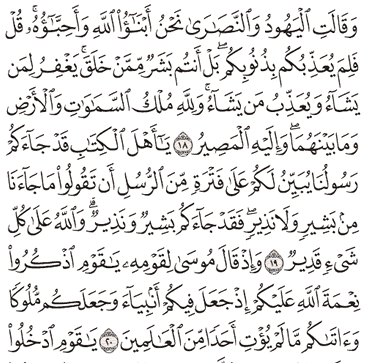 وَقَالَتِ ٱلْيَهُودُ وَٱلنَّصَـٰرَىٰ نَحْنُ أَبْنَـٰٓؤُا۟ ٱللَّهِ وَأَحِبَّـٰٓؤُهُۥ ۚ قُلْ
فَلِمَ يُعَذِّبُكُم بِذُنُوبِكُم ۖ بَلْ أَنتُم بَشَرٌ مِّمَّنْ خَلَقَ ۚ يَغْفِرُ لِمَن
يَشَآءُ وَيُعَذِّبُ مَن يَشَآءُ ۚ وَلِلَّهِ مُلْكُ ٱلسَّمَـٰوَٰتِ وَٱلْأَرْضِ
وَمَا بَيْنَهُمَا ۖ وَإِلَيْهِ ٱلْمَصِيرُ ١٨ يَـٰٓأَهْلَ ٱلْكِتَـٰبِ قَدْ جَآءَكُمْ
رَسُولُنَا يُبَيِّنُ لَكُمْ عَلَىٰ فَتْرَةٍ مِّنَ ٱلرُّسُلِ أَن تَقُولُوا۟ مَا جَآءَنَا
مِنۢ بَشِيرٍ وَلَا نَذِيرٍ ۖ فَقَدْ جَآءَكُم بَشِيرٌ وَنَذِيرٌ ۗ وَٱللَّهُ عَلَىٰ كُلِّ
شَىْءٍ قَدِيرٌ ١٩ وَإِذْ قَالَ مُوسَىٰ لِقَوْمِهِۦ يَـٰقَوْمِ ٱذْكُرُوا۟
نِعْمَةَ ٱللَّهِ عَلَيْكُمْ إِذْ جَعَلَ فِيكُمْ أَنۢبِيَآءَ وَجَعَلَكُم مُّلُوكًا
وَءَاتَىٰكُم مَّا لَمْ يُؤْتِ أَحَدًا مِّنَ ٱلْعَـٰلَمِينَ ٢٠ يَـٰقَوْمِ ٱدْخُلُوا۟